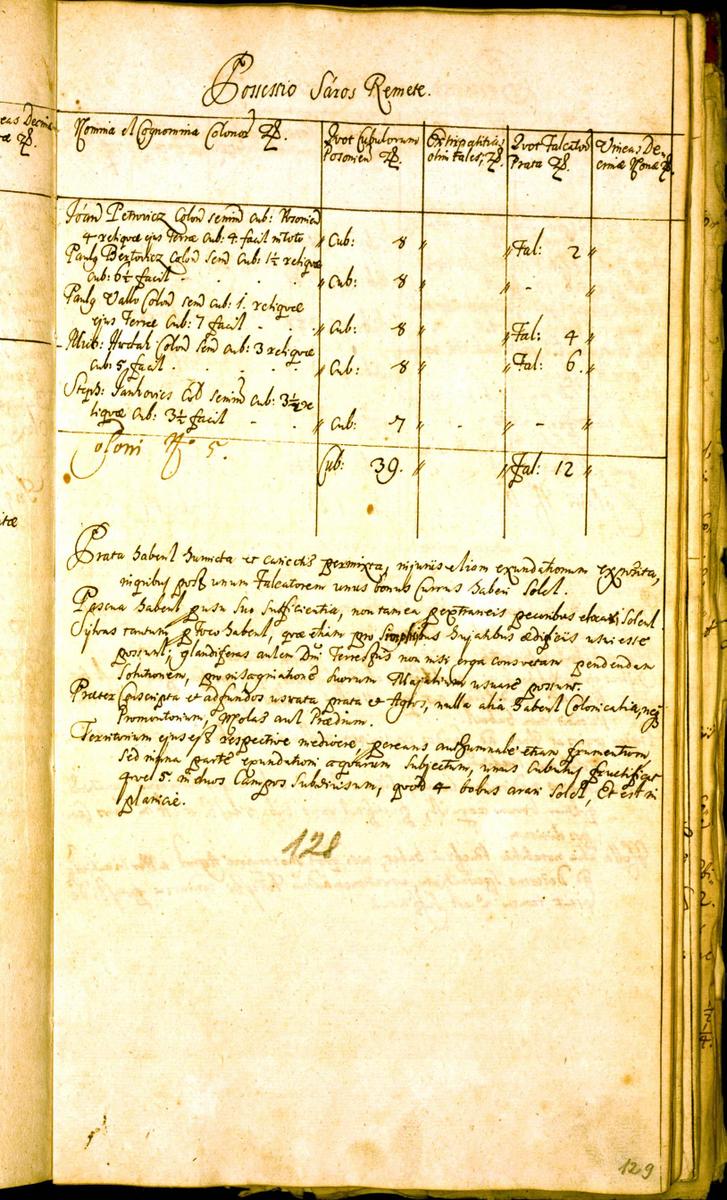 Possessio Sáros Remete.
Nomina et Cognomina Colonor
Quot Cubulorum
Posonien
Extirpatitias
olim tales,
Quot Falcator
Prata
Vineas De-
cimæ Nonæ
Joan Petrovicz Colon semin Cub: Posonien
4 reliquæ ejus Terræ Cub: 4 facit in toto " Cub: 8 " " Fal: 2 "
Paulg Colon sem Cub: 1½ reliquæ
Cub: 6½ facit " Cub: 8 " " - "
Paulg Vallo Colon sem Cub: 1. reliquæ
ejus Terræ Cub: 7 facit " Cub: 8 " " Fal: 4 "
Colon sem Cub: 3 reliquæ
Cub: 5 facit " Cub: 8 " " Fal: 6. "
Steph: Jankovics Col semin Cub: 3½ re
liquæ Cub: 3½ facit " Cub: 7 " - " - "
Coloni No 5. Cub: 39. " " Fal: 12 "
Prata habent humecta et cariectis permixta, injuriis etiam exundationum exposita,
in quibus post unum Falcatorem unus bonus Currus haberi solet.
Pascua habent pusu suo sufficientia, non tamen pextraneis pecoribus solent
Sylvas tantum pro foco habent, quæ etiam pro hujatibus ædificiis usui esse
possunt; glandiferas autem Dni Terrestris non nisi erga consvetam pendendam
Solutionem, pro insaginatione suorum Majalium usuare possunt.
Præter Conscripta et ad fundos usuata prata et Agros, nulla alia habent Colonicalia, neq
Promontorium, Molas aut Prædium.
Territorium ejus est respective mediocre, perenans authumnale etiam frumentum
sed magna parte exundationi aquarum subjectum, unus Cubulus fructificat
quvel 5 in duos Campos subdivisum, quod 4 bobus arari solet, Et est in
planicie.
128
129